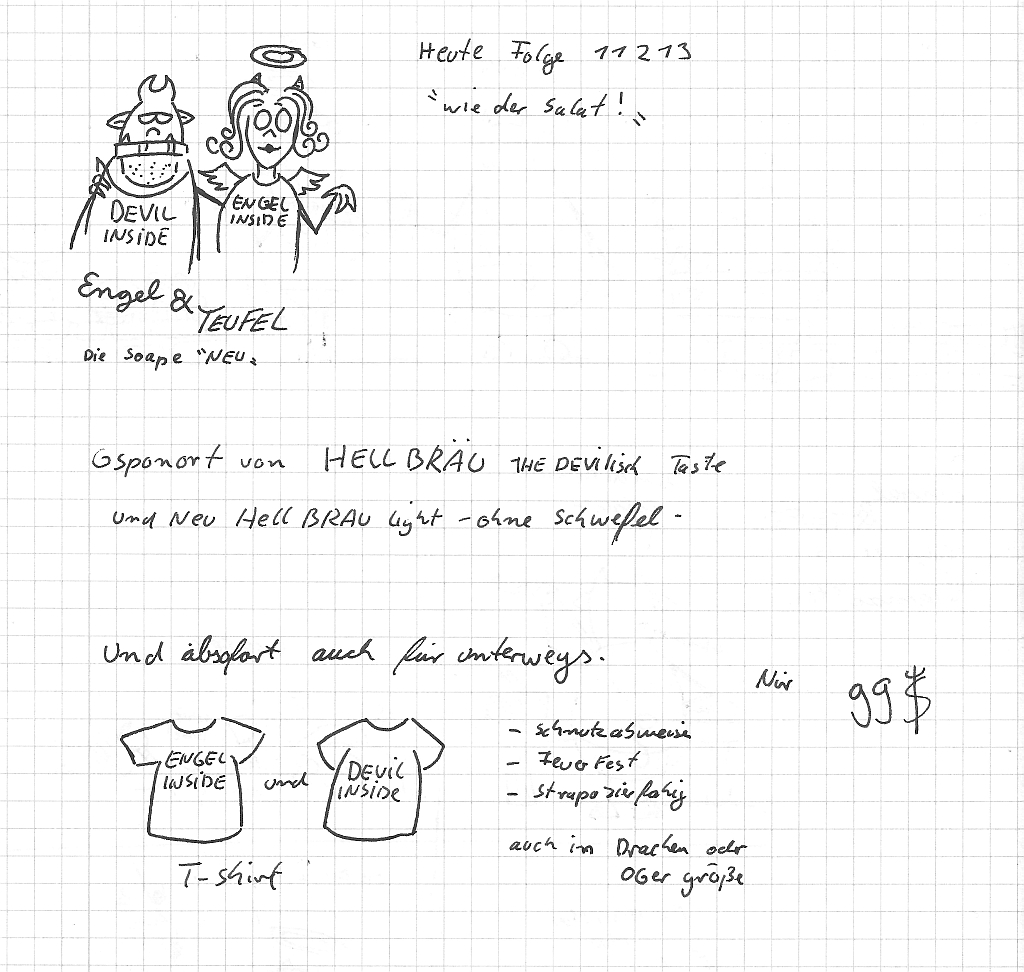 Heute Folge 11213
"wie der Salat!"
DEVIL
INSIDE
ENGEL
INSIDE
Engel &
TEUFEL
Die Soape "NEU"
Gsponort von HELL BRÄU THE DEVilisch Taste
und Neu Hell BRAU light - ohne Schwefel -
Und absofort auch für unterwegs.
Nur 99$
ENGEL
INSIDE
und
DEVIL
INSIDE
T-Shirt
- Schmutzabweisn
- FeuerFest
- Strapazierfähig
auch in Drachen oder
OGer größe